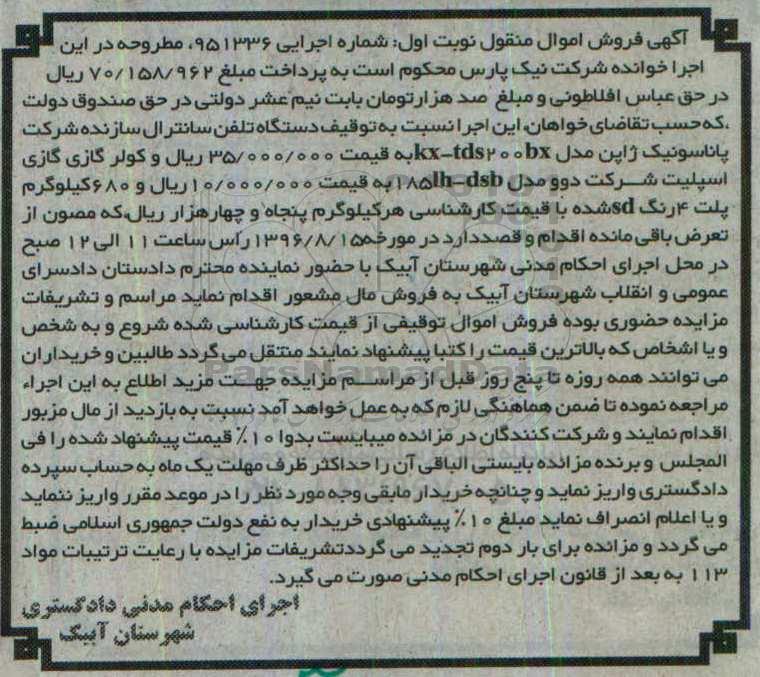 آگهی فروش اموال منقول نوبت اول: شماره اجرایی ۹۵۱۳۳۶، مطروحه در این
اجرا خوانده شرکت نیک پارس محکوم است به پرداخت مبلغ ۷۰/۱۵۸/۹۶۲ ریال
در حق عباس افلاطونی و مبلغ صد هزارتومان بابت نیم عشر دولتی در حق صندوق دولت
،که حسب تقاضای خواهان، این اجرا نسبت به توقیف دستگاه تلفن سانترال سازنده شرکت
پاناسونیک ژاپن مدل kx-tds۲۰۰bx به قیمت ۳۵/۰۰۰/۰۰۰ ریال و کولر گازی گازی
اسپلیت شرکت دوو مدل ۱۸۵lh-dsb به قیمت ۱۰/۰۰۰/۰۰۰ ریال و ۶۸۰ کیلوگرم
پلت ۴رنگ sd شده با قیمت کارشناسی هرکیلوگرم پنجاه و چهارهزار ریال،که مصون از
تعرض باقی مانده اقدام و قصددارد در مورخه ۱۳۹۶/۸/۱۵ رأس ساعت ۱۱ الی ۱۲ صبح
در محل اجرای احکام مدنی شهرستان آبیک با حضور نماینده محترم دادستان دادسرای
عمومی و انقلاب شهرستان آبیک به فروش مال مشعور اقدام نماید مراسم و تشریفات
مزایده حضوری بوده فروش اموال توقیفی از قیمت کارشناسی شده شروع و به شخص
و یا اشخاص که بالاترین قیمت را کتبا پیشنهاد نمایند منتقل می گردد طالبین و خریداران
می توانند همه روزه تا پنج روز قبل از مراسم مزایده جهت مزید اطلاع به این اجراء
مراجعه نموده تا ضمن هماهنگی لازم که به عمل خواهد آمد نسبت به بازدید از مال مزبور
اقدام نمایند و شرکت کنندگان در مزائده میبایست بدوا ۱۰٪ قیمت پیشنهاد شده را فی
المجلس و برنده مزائده بایستی الباقی آن را حداکثر ظرف مهلت یک ماه به حساب سپرده
دادگستری واریز نماید و چنانچه خریدار مابقی وجه مورد نظر را در موعد مقرر واریز ننماید
و یا اعلام انصراف نماید مبلغ ۱۰٪ پیشنهادی خریدار به نفع دولت جمهوری اسلامی ضبط
می گردد و مزائده برای بار دوم تجدید می گرددتشریفات مزایده با رعایت ترتیبات مواد
۱۱۳ به بعد از قانون اجرای احکام مدنی صورت می گیرد.
اجرای احکام مدنی دادگستری
شهرستان آبیک
ParsNamadData